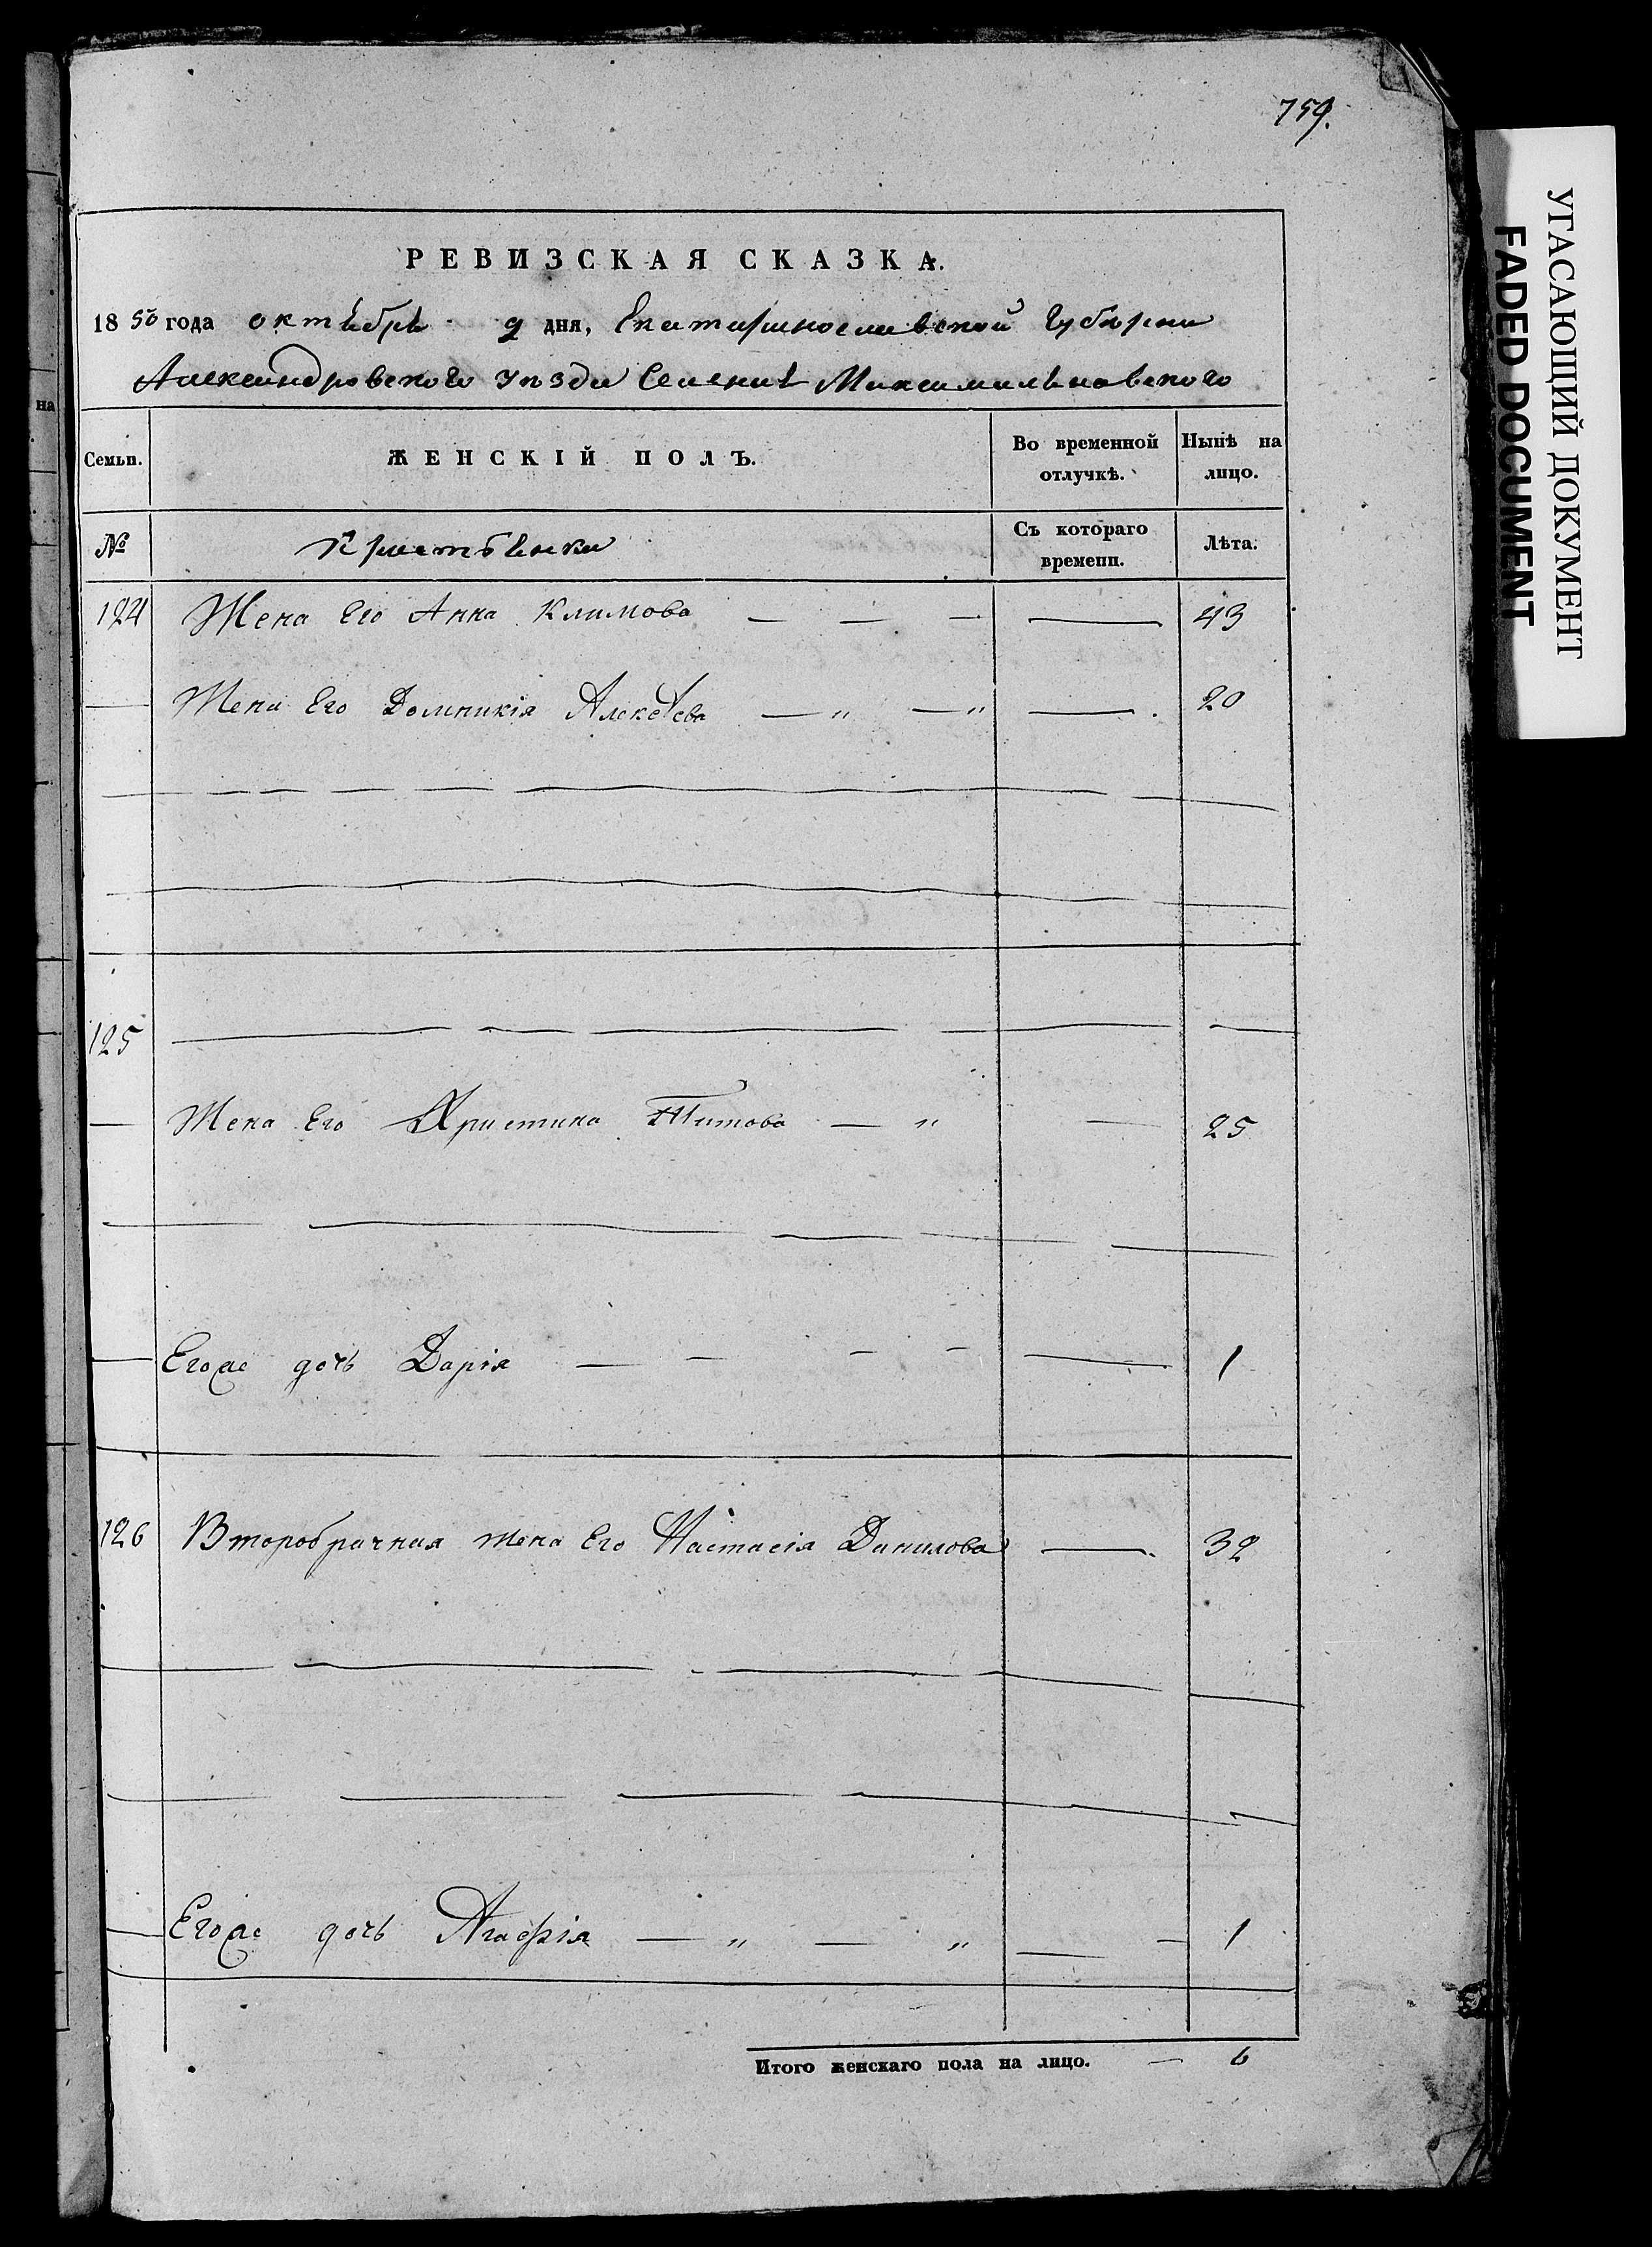 759.
РЕВИЗСКАЯ СКАЗКА.
1850 года октября 9 дня, Екатеринославской Губернии
Александровского Уезда Селения Максимильяновского
Семьи. ЖЕНСКІЙ ПОЛЪ. Во временной отлучкѣ. Нынѣ на лицо.
№ Съ котораго времени. Лѣта.
124 Жена Его Анна Климова — — — — 43
— Жена Его Домникія Алексѣева — " — " — 20
125
— Жена Его Христина Титова — " — 25
— Егоже дочь Дарія — — — — — 1
126 Второбрачная жена Его Настасія Данилова — 32
— Егоже дочь Агафія — " — " — — 1
Итого женскаго пола на лицо. — 6
на
УГАСАЮЩИЙ ДОКУМЕНТ
FADED DOCUMENT